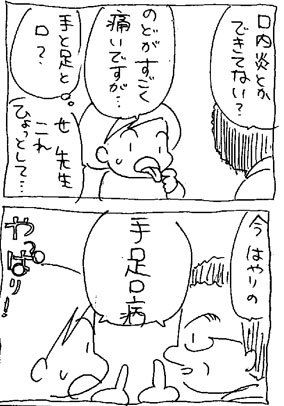 口内炎とか
できてない?
のどがすごく
痛いですが…
手と足と
口?
せ 先生
これ
ひょっとして…
今 はやりの
手足口病
やっぱりー!